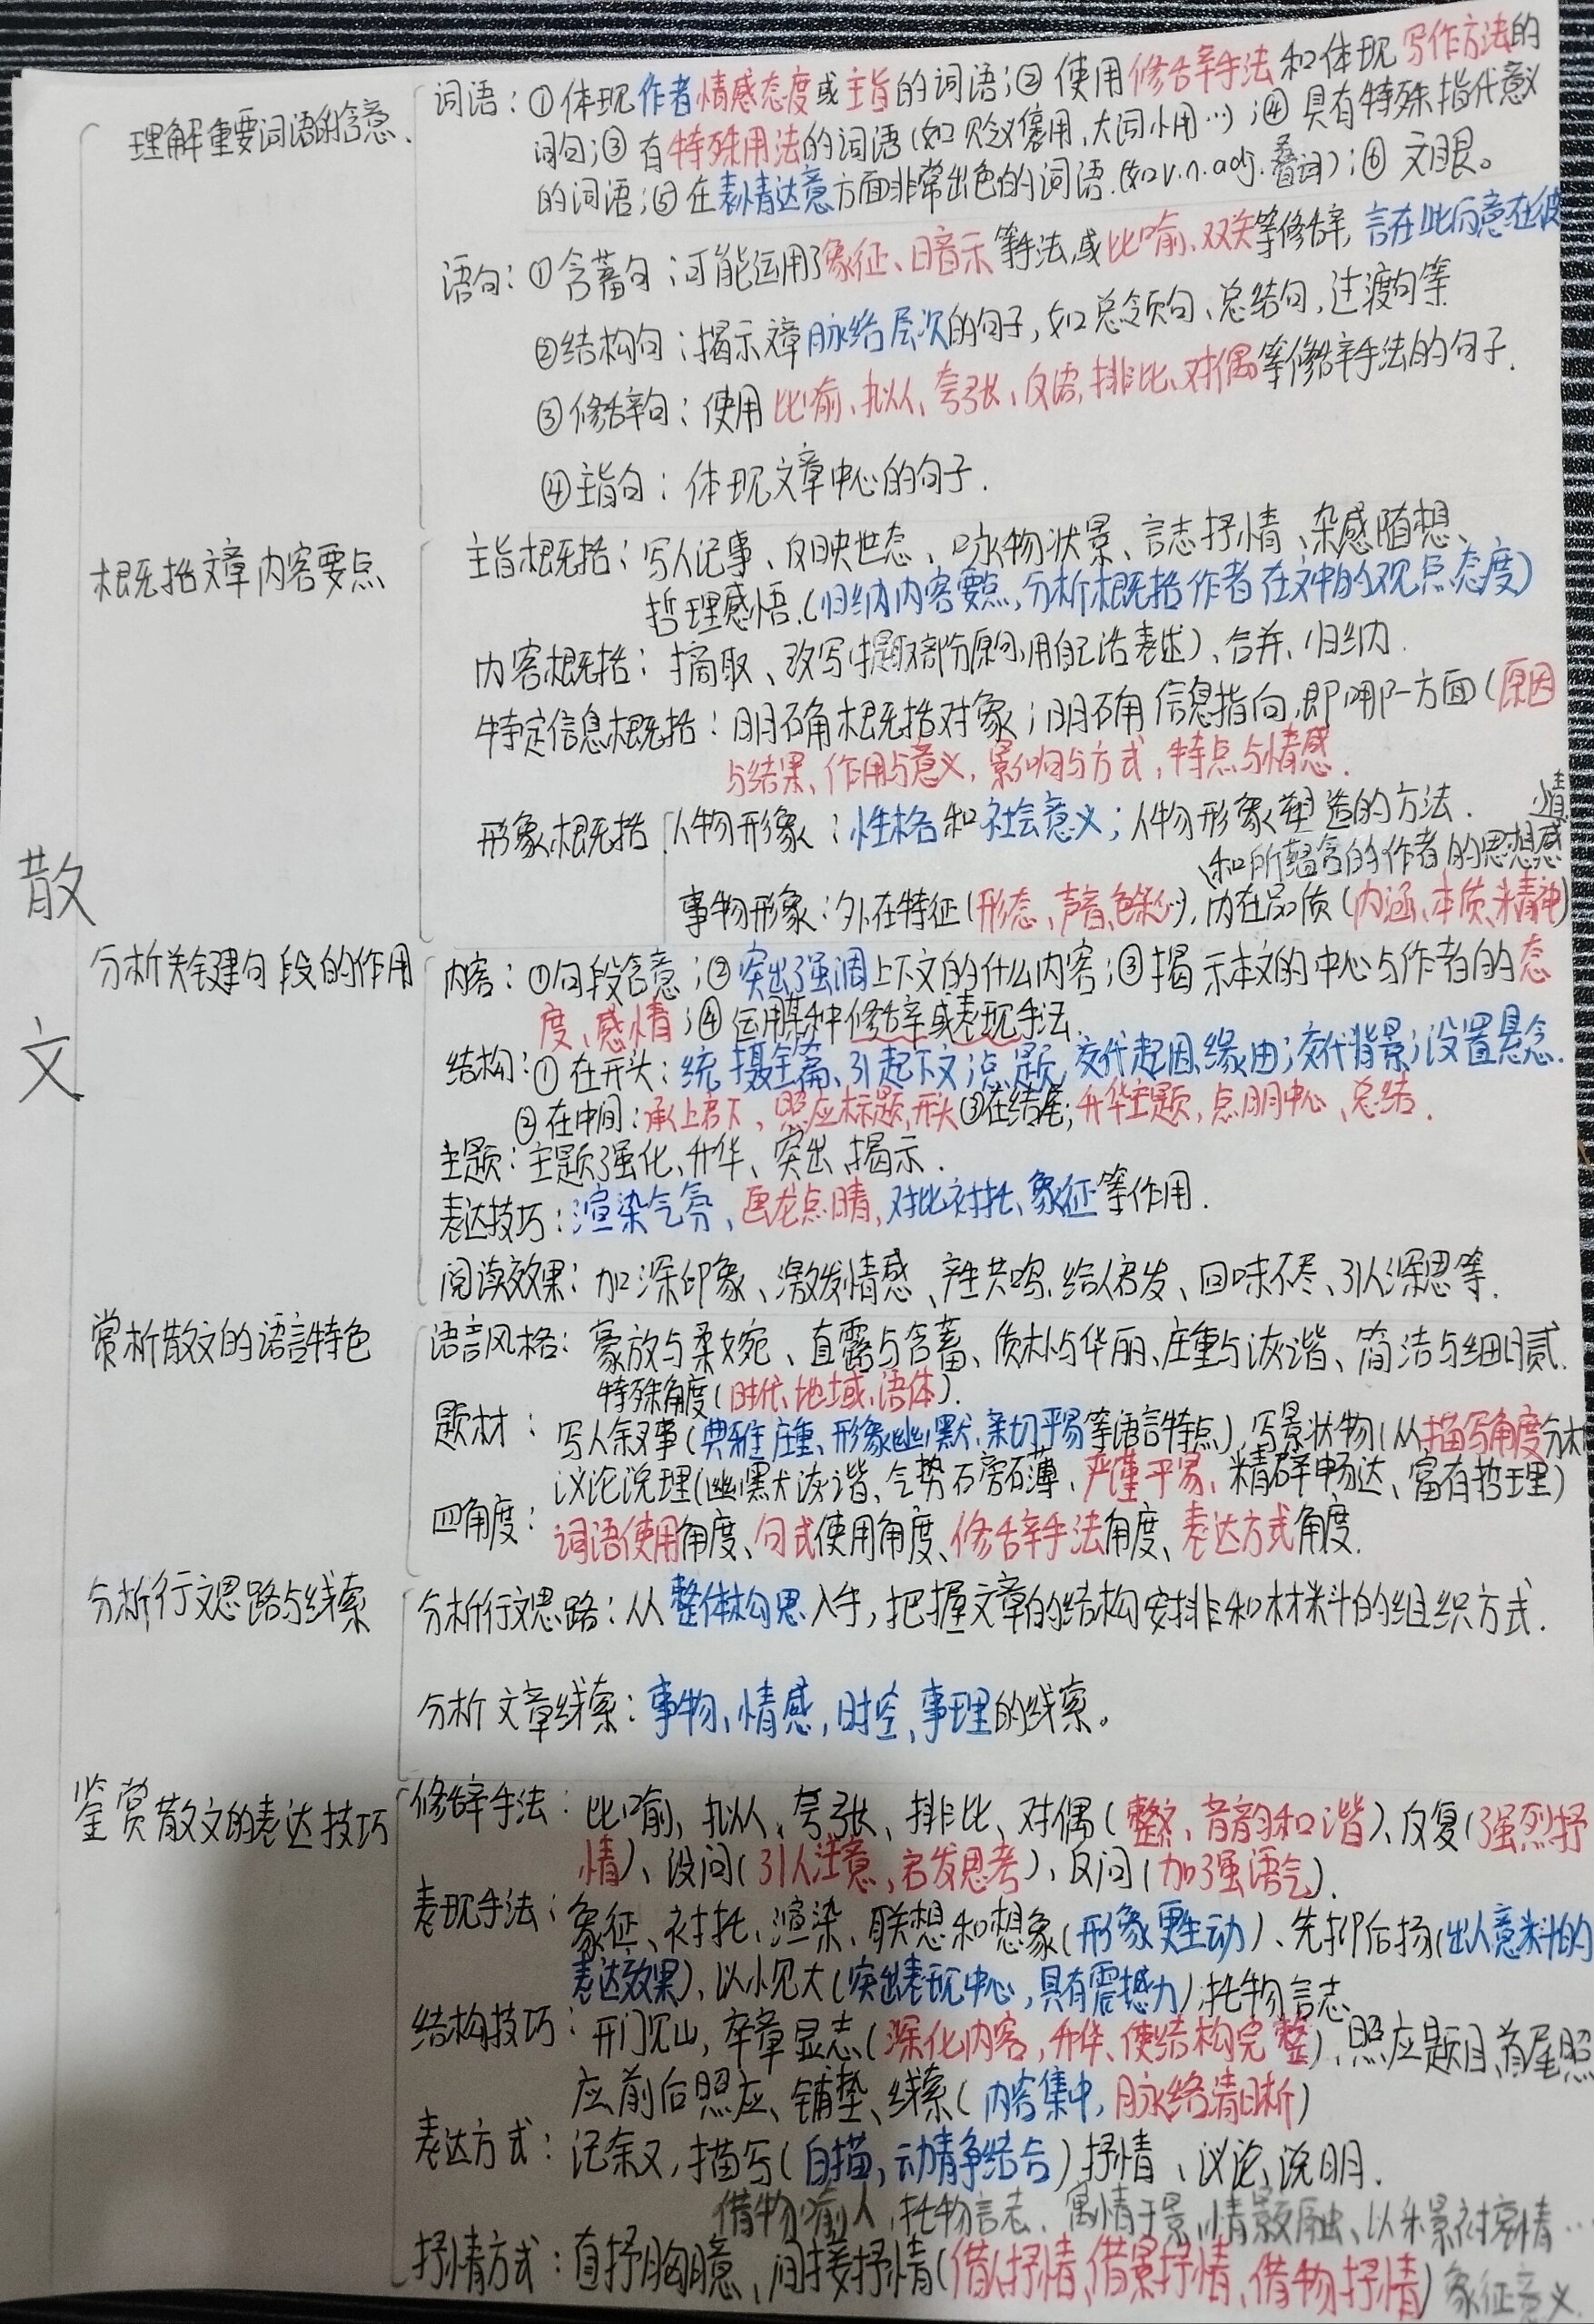 散文
理解重要词语的含意
词语：①体现作者情感态度或主旨的词语；②使用修辞手法和体现写作方法的
词句；③有特殊用法的词语（如贬义褒用，大词小用…）；④具有特殊指代意义
的词语；⑤在表情达意方面非常出色的词语.（如v.n.adj.叠词）；⑥文眼。
语句：①含蓄句；可能运用了象征、暗示等手法，或比喻、双关等修辞，言在此而意在彼
②结构句；揭示文章脉络层次的句子，如总领句、总结句，过渡句等
③修辞句：使用比喻、拟人、夸张、反语，排比、对偶等修辞手法的句子.
④主旨句：体现文章中心的句子.
概括文章内容要点
主旨概括：写人记事、反映世态、咏物状景、言志抒情、杂感随想、
哲理感悟.（归纳内容要点，分析概括作者在文中的观点态度）
内容概括：摘取、改写（提取部分原句，用自己话表述）、合并、归纳.
特定信息概括：明确概括对象；明确信息指向，即哪一方面（原因
与结果、作用与意义，影响与方式，特点与情感.
形象概括
人物形象：性格和社会意义；人物形象塑造的方法.
、和所蕴含的作者的思想感
情
事物形象：外在特征（形态、声音、色彩），内在品质（内涵、本质、精神）
分析关键句段的作用
内容：①句段含意；②突出强调上下文的什么内容；③揭示本文的中心与作者的态
度、感情；④运用某种修辞或表现手法.
结构：①在开头：统摄全篇、引起下文；点题，交代起因，缘由；交代背景；设置悬念.
②在中间：承上启下、照应标题，开头③在结尾；升华主题，点明中心、总结.
主题：主题强化、升华、突出、揭示.
表达技巧：渲染气氛、画龙点睛、对比衬托、象征等作用.
阅读效果：加深印象、激发情感、产生共鸣、给人启发、回味不尽、引人深思等.
赏析散文的语言特色
语言风格：豪放与柔婉、直露与含蓄、质朴与华丽、庄重与诙谐、简洁与细腻.
特殊角度（时代、地域、语体）.
题材：写人叙事（典雅庄重、形象幽默、亲切平易等语言特点），写景状物（从描写角度分析
议论说理（幽默诙谐、气势磅礴、严谨平易、精辟畅达、富有哲理）
四角度：词语使用角度、句式使用角度、修辞手法角度、表达方式角度.
分析行文思路与线索
分析行文思路：从整体构思入手，把握文章的结构安排和材料的组织方式.
分析文章线索：事物、情感，时空、事理的线索。
鉴赏散文的表达技巧
修辞手法：比喻，拟人、夸张、排比、对偶（整齐、音韵和谐）、反复（强烈抒
情）、设问（引人注意，启发思考）、反问（加强语气）.
表现手法：象征、衬托、渲染、联想和想象（形象更生动）、先抑后扬（出人意料的
表达效果），以小见大（突出表现中心，具有震撼力）；托物言志、
结构技巧：开门见山，卒章显志（深化内容，升华、使结构完整）、照应题目、首尾照
应、前后照应、铺垫、线索（内容集中，脉络清晰）
表达方式：记叙，描写（白描，动静结合）抒情、议论、说明.
借物喻人，托物言志、寓情于景，情景交融、以乐景衬哀情…
抒情方式：直抒胸臆、间接抒情（借人抒情、借景抒情、借物抒情）象征意义